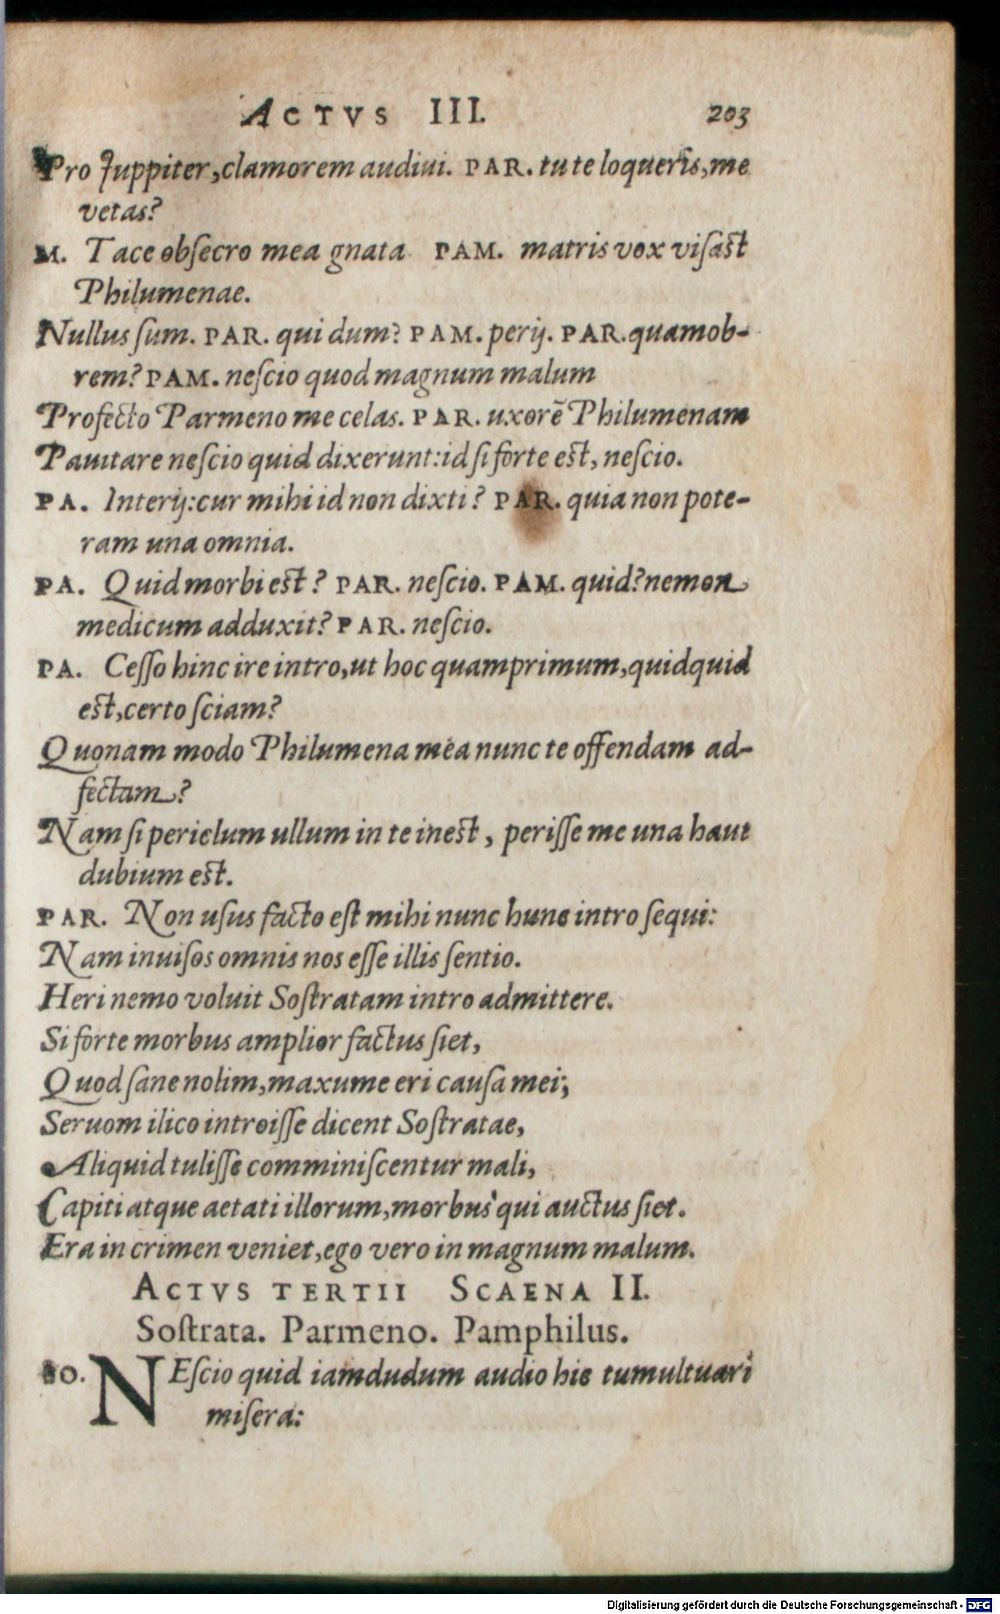 ACTVS III. 203
Pro Juppiter, clamorem audiui. PAR. tute loqueris, me
vetas?
M. Tace obſecro mea gnata PAM. matris vox viſast
Philumenae.
Nullus ſum. PAR. qui dum? PAM. perij. PAR. quamob-
rem? PAM. neſcio quod magnum malum
Profecto Parmeno me celas. PAR. uxorē Philumenam
Pauitare neſcio quid dixerunt: id ſi forte est, neſcio.
PA. Interij: cur mihi id non dixti? PAR. quia non pote-
ram una omnia.
PA. Quid morbi est? PAR. neſcio. PAM. quid? nemon
medicum adduxit? PAR. neſcio.
PA. Ceſſo hinc ire intro, ut hoc quamprimum, quidquid
est, certo ſciam?
Quonam modo Philumena mea nunc te offendam ad-
fectam?
Nam ſi periclum ullum in te inest, periſſe me una haut
dubium est.
PAR. Non uſus facto eſt mihi nunc hunc intro ſequi:
Nam inuiſos omnis nos eſſe illis ſentio.
Heri nemo voluit Sostratam intro admittere.
Si forte morbus amplior factus ſiet,
Quod ſane nolim, maxume eri cauſa mei;
Seruom ilico introiſſe dicent Sostratae,
Aliquid tuliſſe comminiſcentur mali,
Capiti atque aetati illorum, morbus qui auctus ſiet.
Era in crimen veniet, ego vero in magnum malum.
ACTVS TERTII SCAENA II.
Sostrata. Parmeno. Pamphilus.
SO. NEſcio quid iamdudum audio hic tumultuari
miſera:
Digitalisierung gefördert durch die Deutsche Forschungsgemeinschaft - DFG